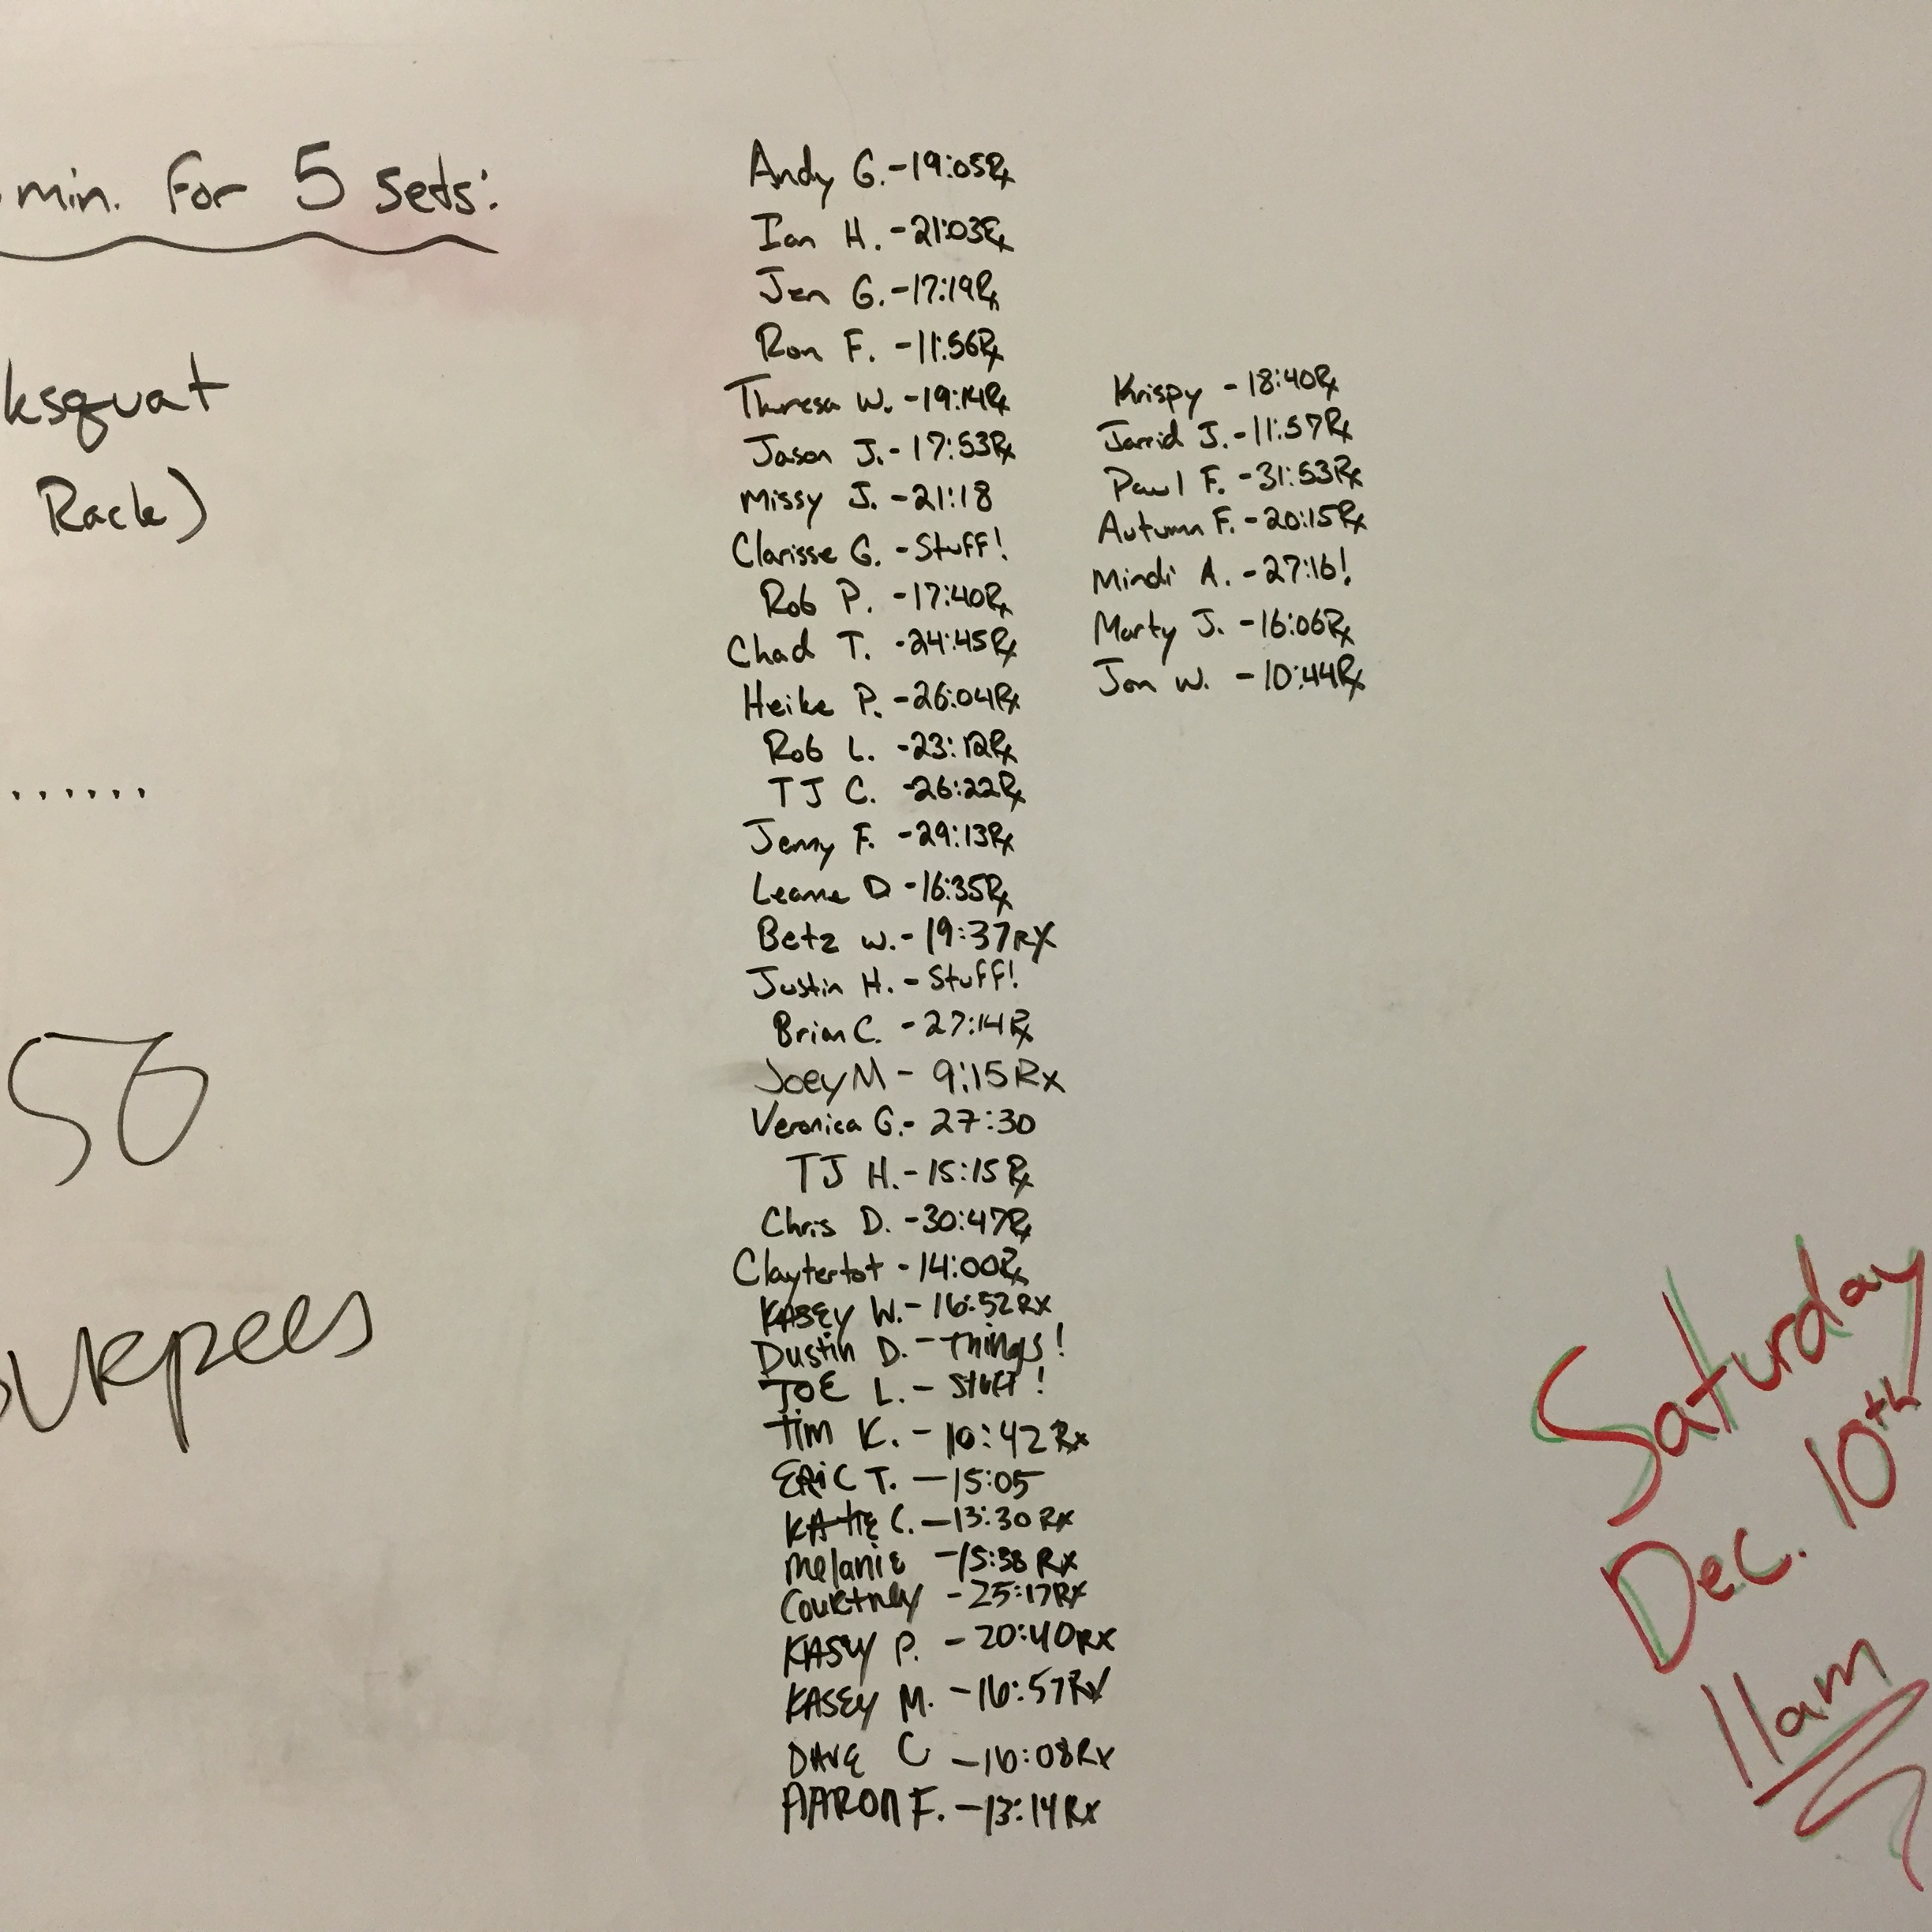 min. For 5 sets:
ksquat
Rack)
......
50
urpees
Andy G.-19:05Rx
Ian H. -21:03Rx
Jen G.-17:19Rx
Ron F. -11:56Rx
Theresa W. -19:14Rx
Jason J.- 17:53Rx
Missy J. -21:18
Clarisse G. -Stuff!
Rob P. -17:40Rx
Chad T. -24:45Rx
Heike P. -26:04Rx
Rob L. -23:12Rx
TJ C. -26:22Rx
Jenny F. -29:13Rx
Leanne D -16:35Rx
Betz W.- 19:37RX
Justin H. - Stuff!
Brian C. -27:14Rx
Joey M - 9:15 Rx
Veronica G.- 27:30
TJ H.- 15:15Rx
Chris D. -30:47Rx
Claytertot - 14:00Rx
KASEY W.- 16:52RX
Dustin D. - Things!
JOE L. - Stuff!
Tim K. - 10:42 Rx
ERiC T. - 15:05
KAtiE C. -13:30 RX
Melanie -15:38 RX
Courtney - 25:17RX
KASEY P. - 20:40RX
KASEY M. - 16:57RX
DAVE C -16:08RX
AARON F. -13:14RX
Krispy - 18:40Rx
Jarrid J. -11:57Rx
Paul F. -31:53Rx
Autumn F. -20:15Rx
Mindi A. -27:16!
Marty J. -16:06Rx
Jon W. -10:44Rx
Saturday
Dec. 10th
11am